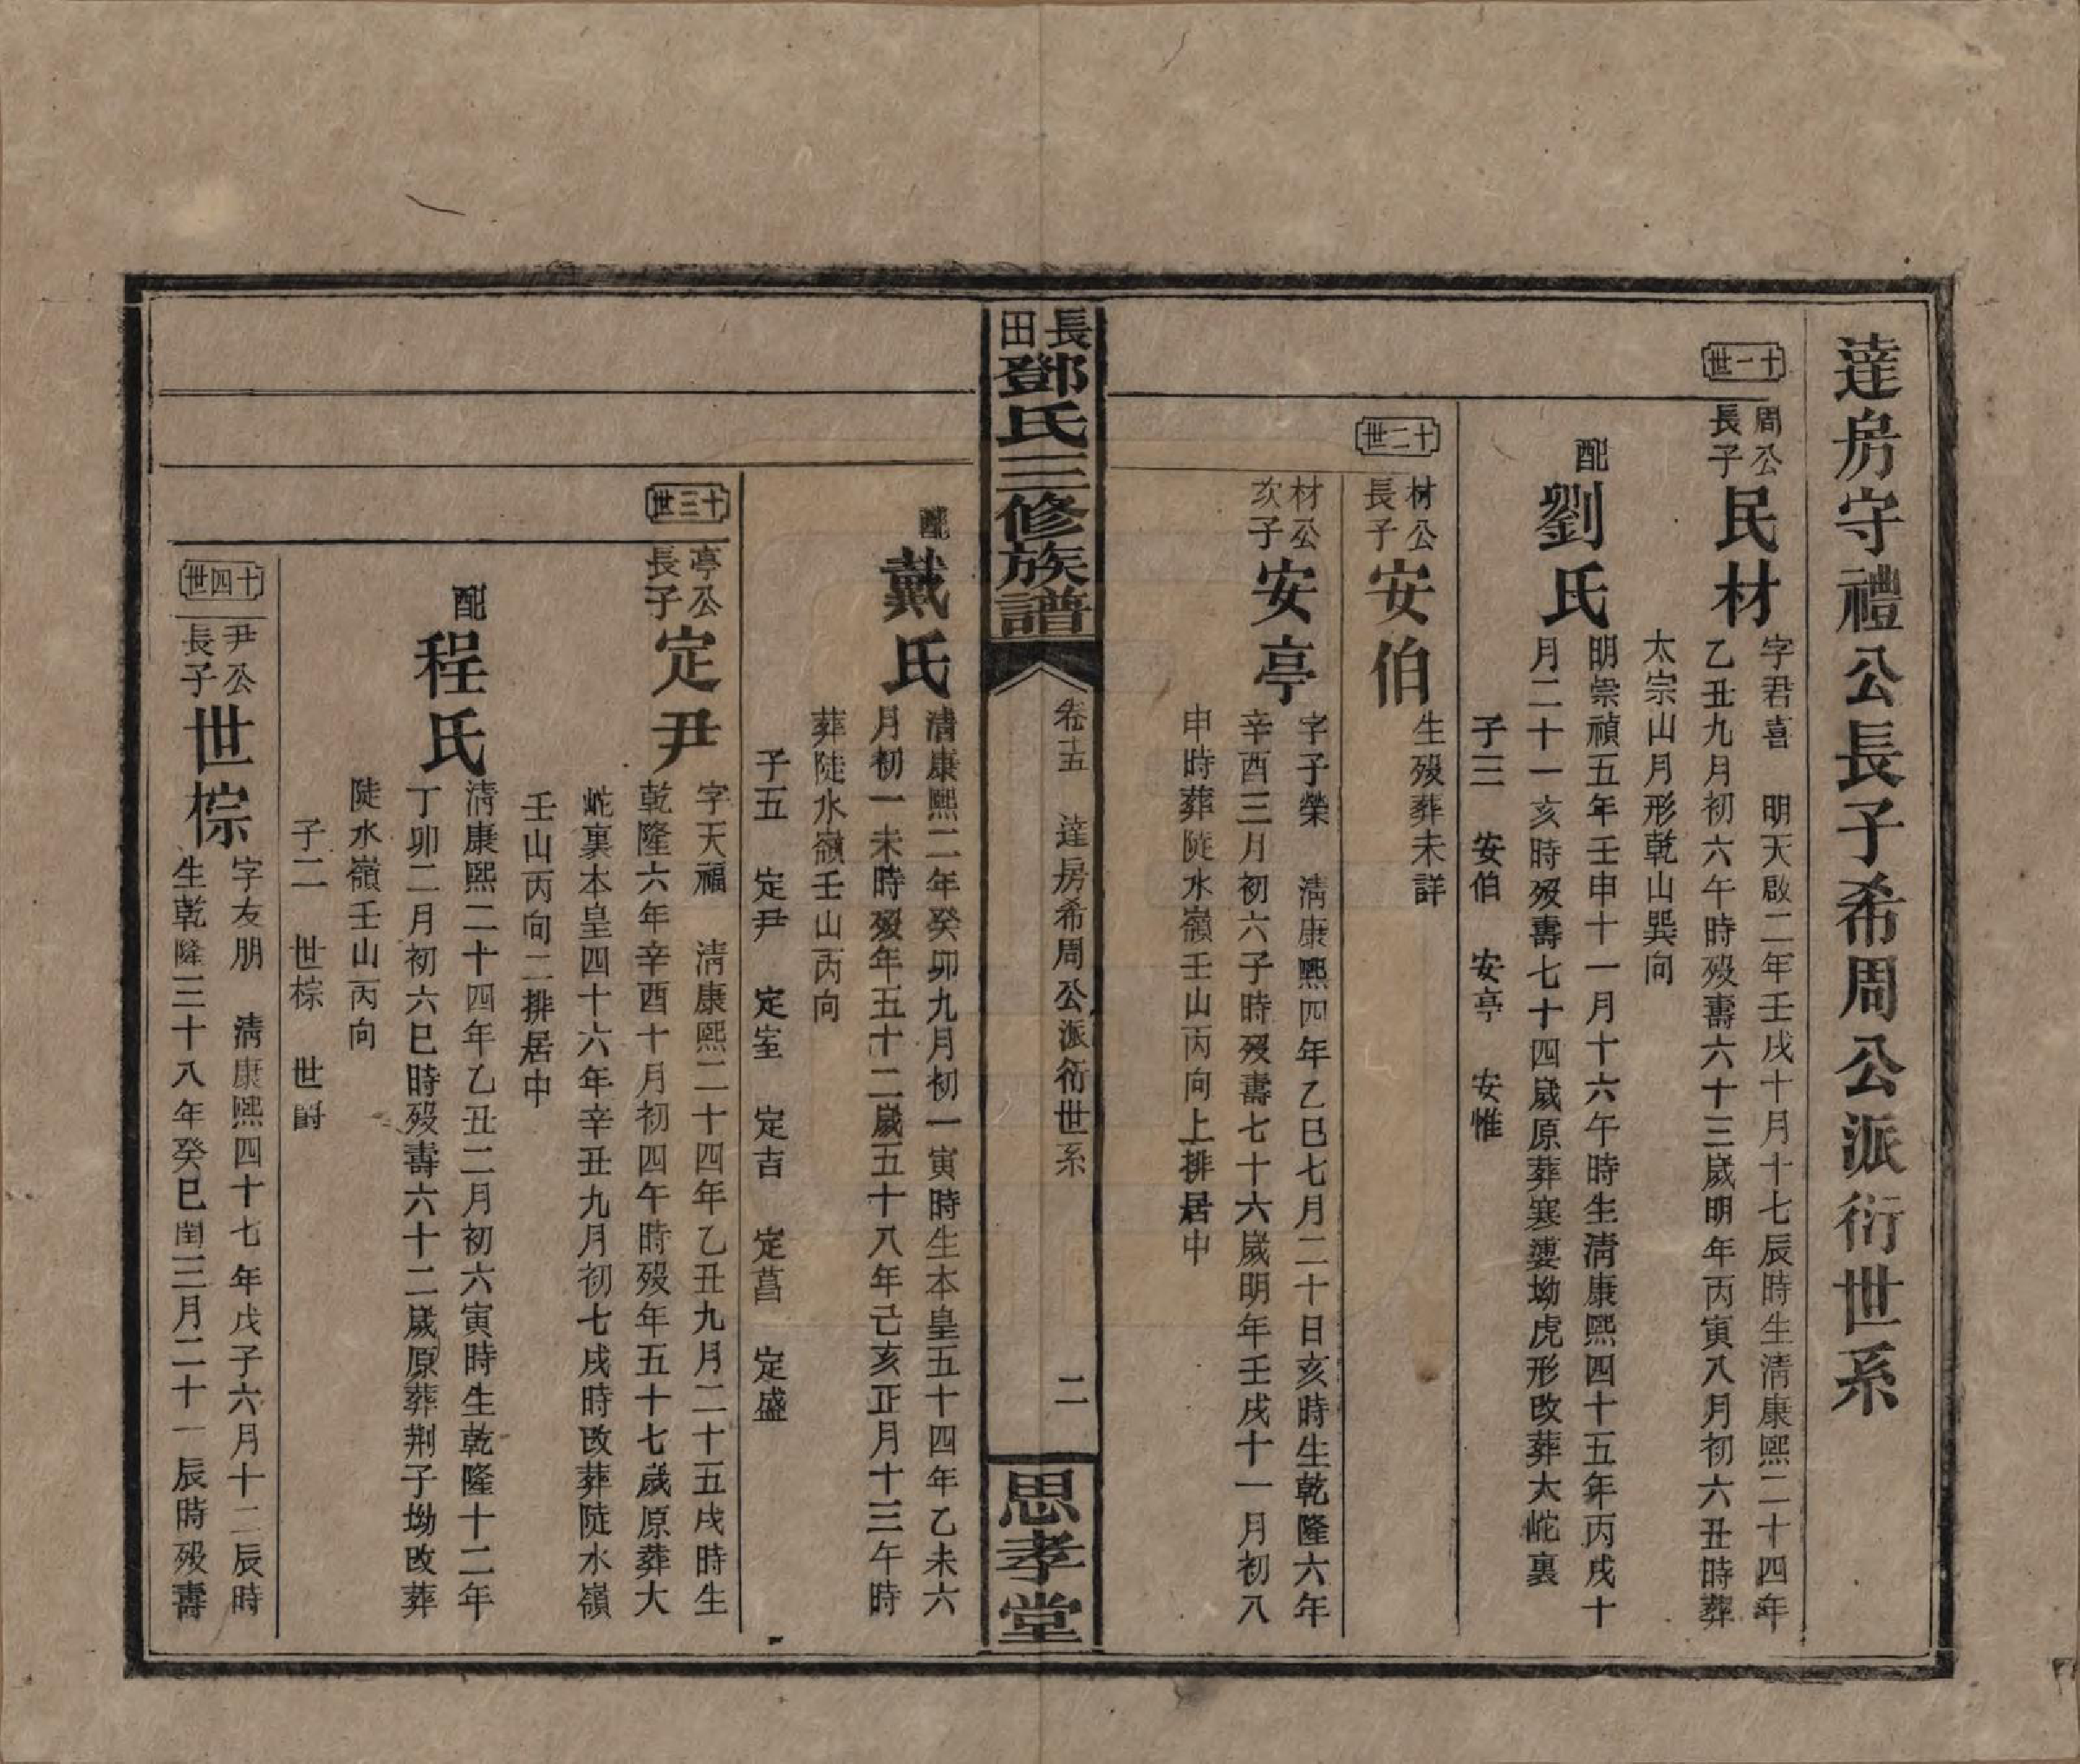 達房守禮公長子希周公派衍世系
十一世
周公
長子
民材
字君喜　明天啟二年壬戌十月十七辰時生清康熙二十四年
乙丑九月初六午時歿壽六十三歲明年丙寅八月初六丑時葬
太宗山月形乾山巽向
配
劉氏
明崇禎五年壬申十一月十六午時生清康熙四十五年丙戌十
月二十一亥時歿壽七十四歲原葬寒婆坳虎形改葬大岮裏
子三　安伯　安亭　安惟
十二世
材公
長子
安伯
生歿葬未詳
材公
次子
安亭
字子榮　清康熙四年乙巳七月二十日亥時生乾隆六年
辛酉三月初六子時歿壽七十六歲明年壬戌十一月初八
申時葬陡水嶺壬山丙向上排居中
長田
鄧氏三修族譜
卷十五　達房希周公派衍世系
二
思孝堂
配
戴氏
清康熙二年癸卯九月初一寅時生本皇五十四年乙未六
月初一未時歿年五十二歲五十八年己亥正月十三午時
葬陡水嶺壬山丙向
子五　定尹　定室　定吉　定菖　定盛
十三世
亭公
長子
定尹
字天福　清康熙二十四年乙丑九月二十五戌時生
乾隆六年辛酉十月初四午時歿年五十七歲原葬大
岮裏本皇四十六年辛丑九月初七戌時改葬陡水嶺
壬山丙向二排居中
配
程氏
清康熙二十四年乙丑二月初六寅時生乾隆十二年
丁卯二月初六巳時歿壽六十二歲原葬荆子坳改葬
陡水嶺壬山丙向
子二　世棕　世爵
十四世
尹公
長子
世棕
字友朋　清康熙四十七年戊子六月十二辰時
生乾隆三十八年癸巳閏三月二十一辰時歿壽